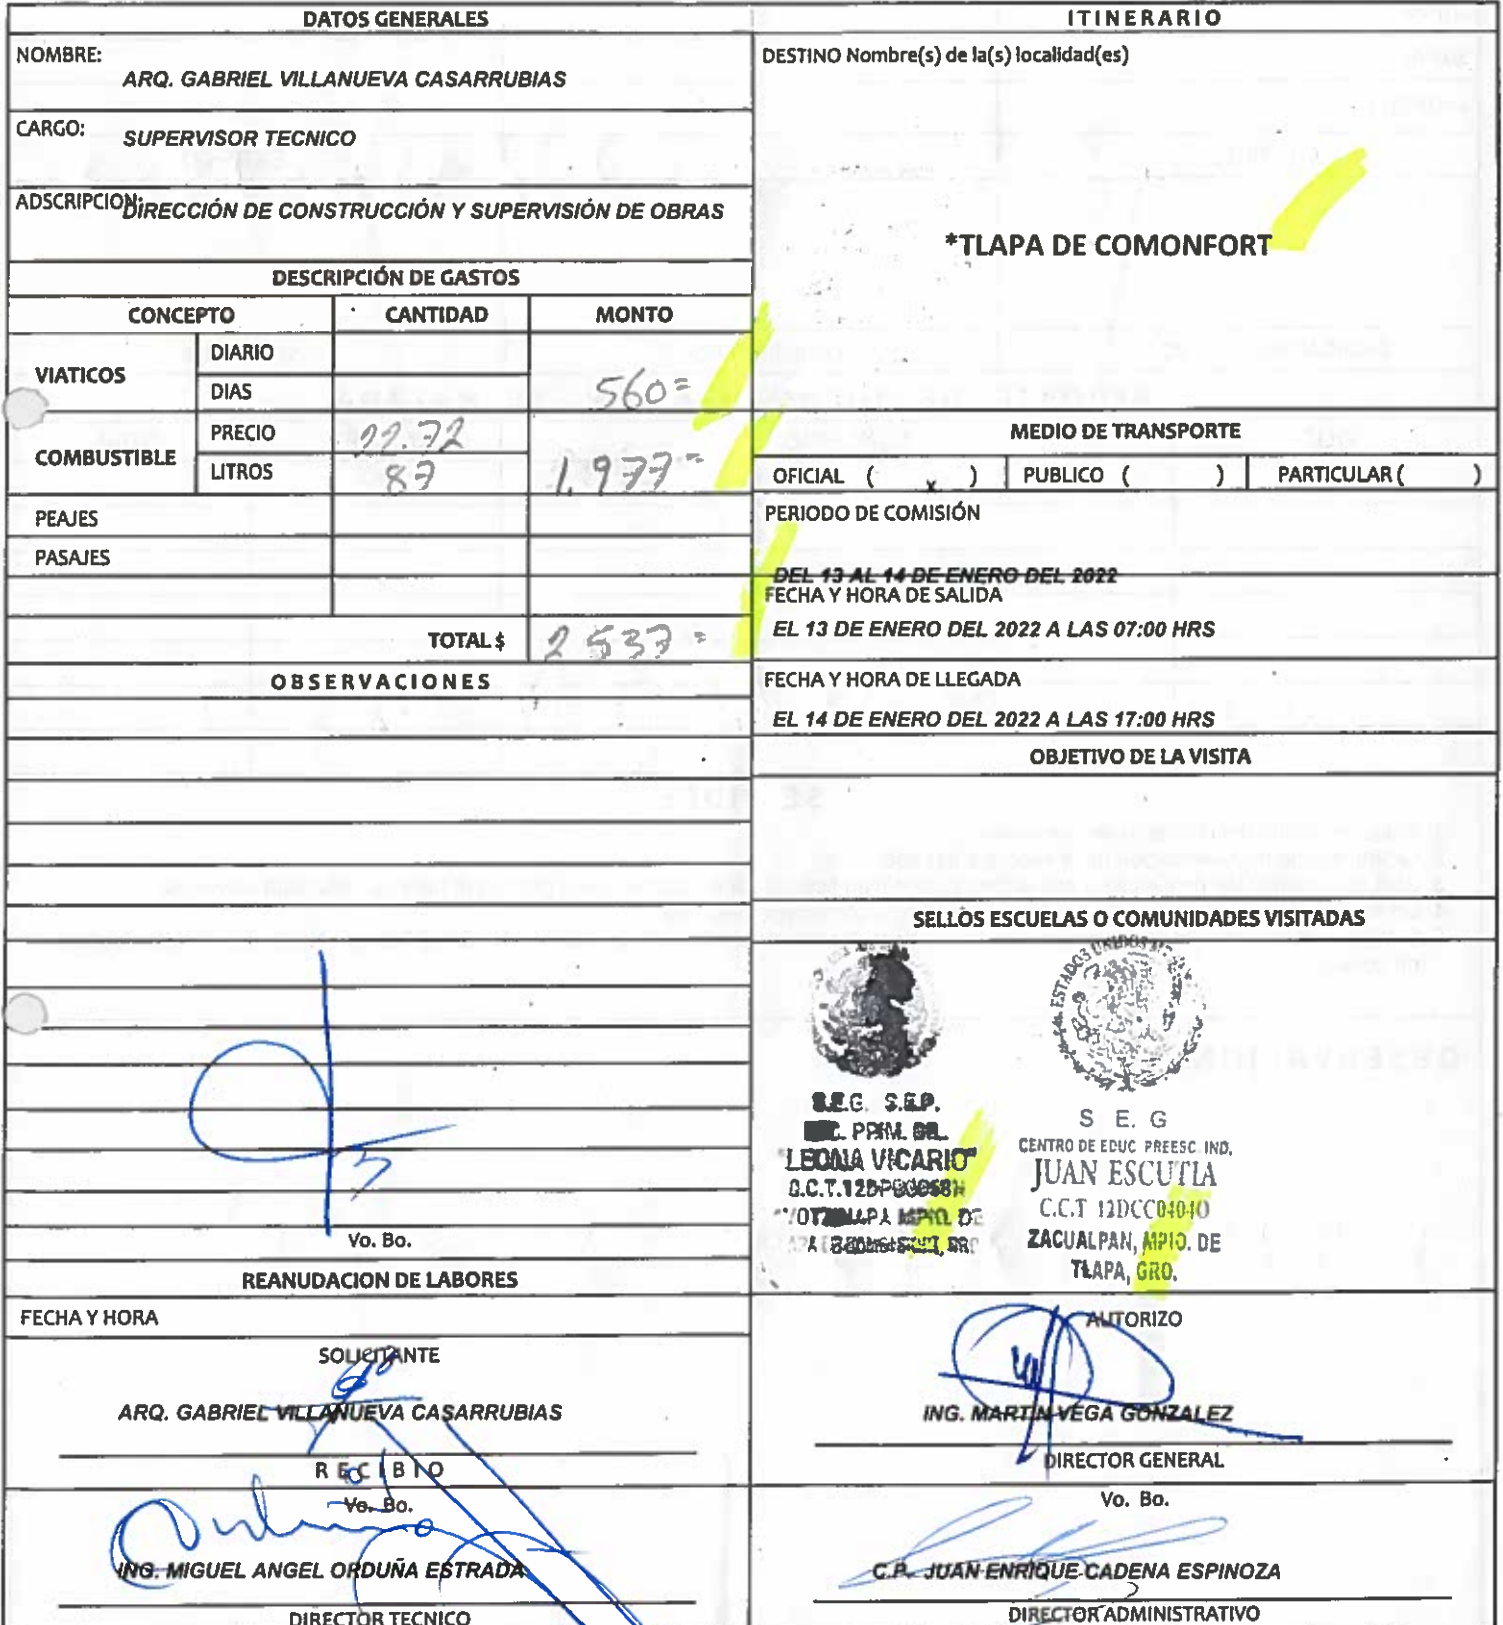 DATOS GENERALES
NOMBRE:
ARQ. GABRIEL VILLANUEVA CASARRUBIAS
CARGO:
SUPERVISOR TECNICO
ADSCRIPCION:
DIRECCIÓN DE CONSTRUCCIÓN Y SUPERVISIÓN DE OBRAS
DESCRIPCIÓN DE GASTOS
CONCEPTO CANTIDAD MONTO
VIATICOS
DIARIO
DIAS
560=
COMBUSTIBLE
PRECIO 22.72
LITROS 87
1,977=
PEAJES
PASAJES
TOTAL $ 2 537=
OBSERVACIONES
Vo. Bo.
REANUDACION DE LABORES
FECHA Y HORA
SOLICITANTE
ARQ. GABRIEL VILLANUEVA CASARRUBIAS
RECIBIO
Vo. Bo.
ING. MIGUEL ANGEL ORDUÑA ESTRADA
DIRECTOR TECNICO
ITINERARIO
DESTINO Nombre(s) de la(s) localidad(es)
*TLAPA DE COMONFORT
MEDIO DE TRANSPORTE
OFICIAL ( x ) PUBLICO ( ) PARTICULAR ( )
PERIODO DE COMISIÓN
DEL 13 AL 14 DE ENERO DEL 2022
FECHA Y HORA DE SALIDA
EL 13 DE ENERO DEL 2022 A LAS 07:00 HRS
FECHA Y HORA DE LLEGADA
EL 14 DE ENERO DEL 2022 A LAS 17:00 HRS
OBJETIVO DE LA VISITA
SELLOS ESCUELAS O COMUNIDADES VISITADAS
S.E.G. S.E.P.
PRIM.
"LEONA VICARIO"
ESTADOS UNIDOS
S E. G
CENTRO DE EDUC PREESC. IND.
JUAN ESCUTIA
C.C.T 12DCC0404O
ZACUALPAN, MPIO. DE
TLAPA, GRO.
AUTORIZO
ING. MARTIN VEGA GONZALEZ
DIRECTOR GENERAL
Vo. Bo.
C.P. JUAN ENRIQUE CADENA ESPINOZA
DIRECTOR ADMINISTRATIVO